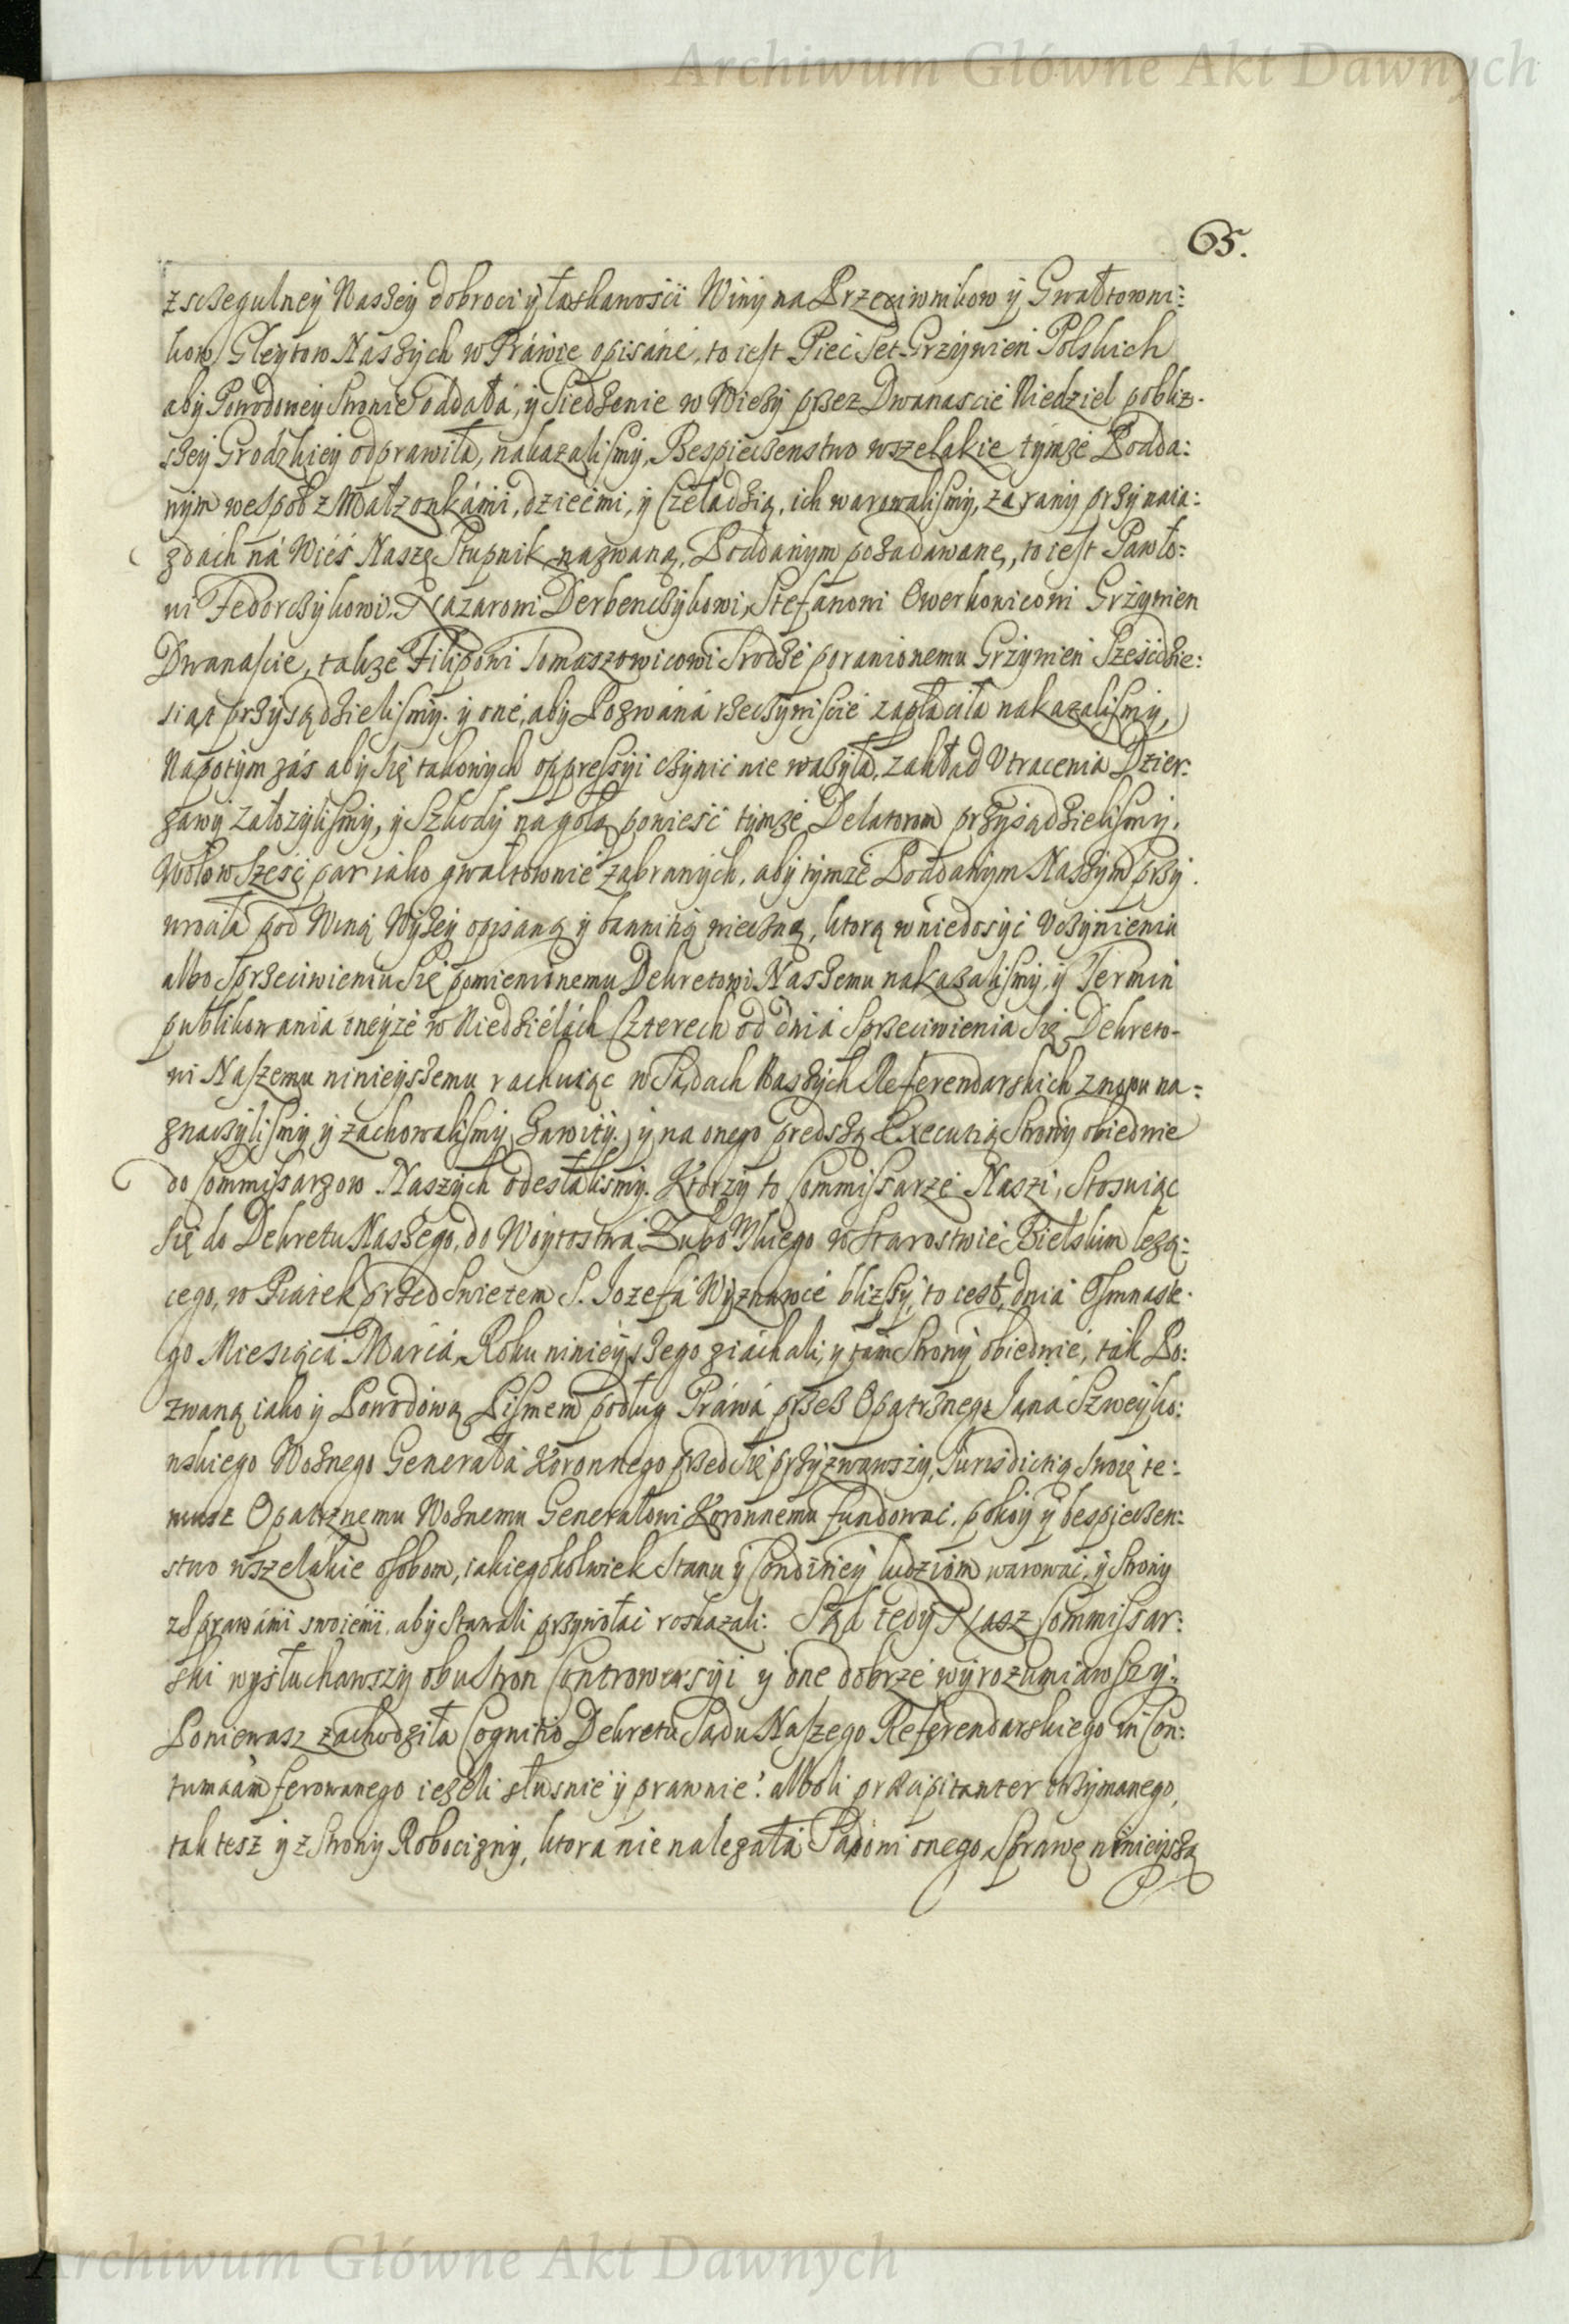 Archiwum Główne Akt Dawnych
65.
zsczegulney Naszey dobroci y łaskawości Winy na Przeciwnikow y Gwałtowni:
kow Gleytow Naszych w Prawie opisane, to iest Piec Set Grzywien Polskich
aby Powodowey Stronie oddała, y Siedzenie w Wiezy przez Dwanascie Niedziel pobliz-
szey Grodzkiey odprawiła, nakazalismy, Bespieczenstwo wszelakie tymze Podda:
nym wespoł z Małzonkámi, dziećmi, y Czeladzią, ich warowalismy, za rany przy naia:
zdách ná Wieś Naszę Stupnik nazwaną, Poddanym pozadawane, to iest Pawło:
wi Fedorczykowi, Nazarowi Derbenczykowi, Stefanowi Owerkowicowi Grzywien
Dwanascie, takze Filipowi Tomaszowicowi Srodze poranionemu Grzywien Sześćdzie:
siąt przysądzielismy. y one, aby Pozwána rzeczywiście zapłaciła nakazalismy,
Napotym zás aby Się takowych oppressyi czynić nie wazyła, zakład Utracenia Dzier:
zawy założylismy, y Szkody nagołą ponieść tymze Delatorom przysądzielismy.
Wołow Sześć par iako gwałtownie zabranych, aby tymze Poddanym Naszym przy
wrociła pod Winą Wyzey opisaną y bannitią wieczną, ktorą w niedosyć Uczynieniu
albo Sprzeciwieniu Się pomienionemu Dekretowi Naszemu nakazalismy, y Termin
publikowania teyze w Niedzielách Czterech od dniá Sprzeciwienia Się Dekreto-
wi Naszemu ninieyszemu rachuiąc w Sądach Naszych Referendarskich znowu na:
znaczylismy y zachowalismy Zawity. y na onego predszą Executią Strony obiedwie
do Commissarzow Naszych odesłalismy. Ktorzy to Commissarze Naszi, Stosuiąc
Się do Dekretu Naszego, do Woytostwa Zubowskiego w Starostwie Bielskim lezą:
cego, w Piątek przed Swietem S. Jozefa Wyznawce blizszy, to iest, dnia Osmnaste-
go Miesiąca Marca, Roku ninieyszego ziáchali, y tam Strony obiedwie, tak Po:
zwaną iako y Powodową Pismem podług Práwá przez Opatrznego Janá Szweyko:
wskiego Woznego Generała Koronnego przed Się przyzwawszy, Jurisdictią Swoię te:
musz Opatrznemu Woznemu Generałowi Koronnemu fundować, pokoy y bespieczen:
stwo wszelakie osobom, iakiegokolwiek Stanu y Conditiey ludziom warować, y Strony
z Sprawámi swoiemi, aby Stawali przywołać roskazali: Sąd tedy Nasz Commissar:
ski wysłuchawszy obu Stron Controwersyi y one dobrze wyrozumiawszy:
Poniewasz zachodziła Cognitio Dekretu Sądu Naszego Referendarskiego in Con:
tumaciam ferowanego iezeli słusnie y prawnie? alboli præcipitanter otrzymanego,
tak tesz y z Strony Robocizny, ktora nie nalezała Sądowi onego, Sprawę ninieyszą
Archiwum Główne Akt Dawnych